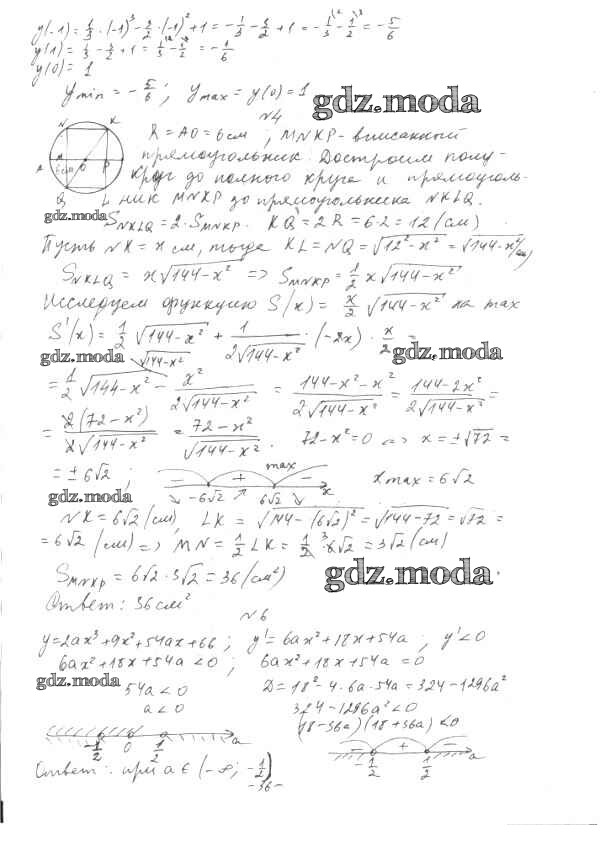 y(-1) = 1/3 · (-1)³ - 3/2 · (-1)² + 1 = -1/3 - 3/2 + 1 = -1/3 - 1/2 = -5/6
y(1) = 1/3 - 3/2 + 1 = 1/3 - 1/2 = -1/6
y(0) = 1
y min = -5/6; y max = y(0) = 1
gdz.moda
N4
R = AO = 6 см; MNKP - вписанный
прямоугольник. Достроим полу-
круг до полного круга и прямоуголь-
ник MNKP до прямоугольника NKLQ.
gdz.moda
S NKLQ = 2 · S MNKP. KQ = 2R = 6·2 = 12 (см)
Пусть NK = x см, тогда KL = NQ = √(12² - x²) = √(144-x²) (см)
S NKLQ = x√(144-x²) => S MNKP = 1/2 x√(144-x²)
Исследуем функцию S(x) = x/2 √(144-x²) на max
S'(x) = 1/2 √(144-x²) + 1/(2√(144-x²)) · (-2x) · x/2 =
gdz.moda
gdz.moda
= 1/2 √(144-x²) - x²/(2√(144-x²)) = (144-x²-x²)/(2√(144-x²)) = (144-2x²)/(2√(144-x²)) =
= 2(72-x²)/(2√(144-x²)) = (72-x²)/√(144-x²). 72-x²=0 <=> x = ±√72 =
= ±6√2; - + - max -6√2 6√2 x x max = 6√2
gdz.moda
NK = 6√2 (см), LK = √(144-(6√2)²) = √(144-72) = √72 =
= 6√2 (см) => MN = 1/2 LK = 1/2 · 6√2 = 3√2 (см)
S MNKP = 6√2 · 3√2 = 36 (см²)
gdz.moda
Ответ: 36 см²
N6
y = 2ax³ + 9x² + 54ax + 66; y' = 6ax² + 18x + 54a; y' < 0
6ax² + 18x + 54a < 0; 6ax² + 18x + 54a = 0
gdz.moda
54a < 0 D = 18² - 4·6a·54a = 324 - 1296a²
a < 0 324 - 1296a² < 0
(18-36a)(18+36a) < 0
-1/2 0 1/2 a
- + - -1/2 1/2 a
Ответ: при a ∈ (-∞; -1/2)